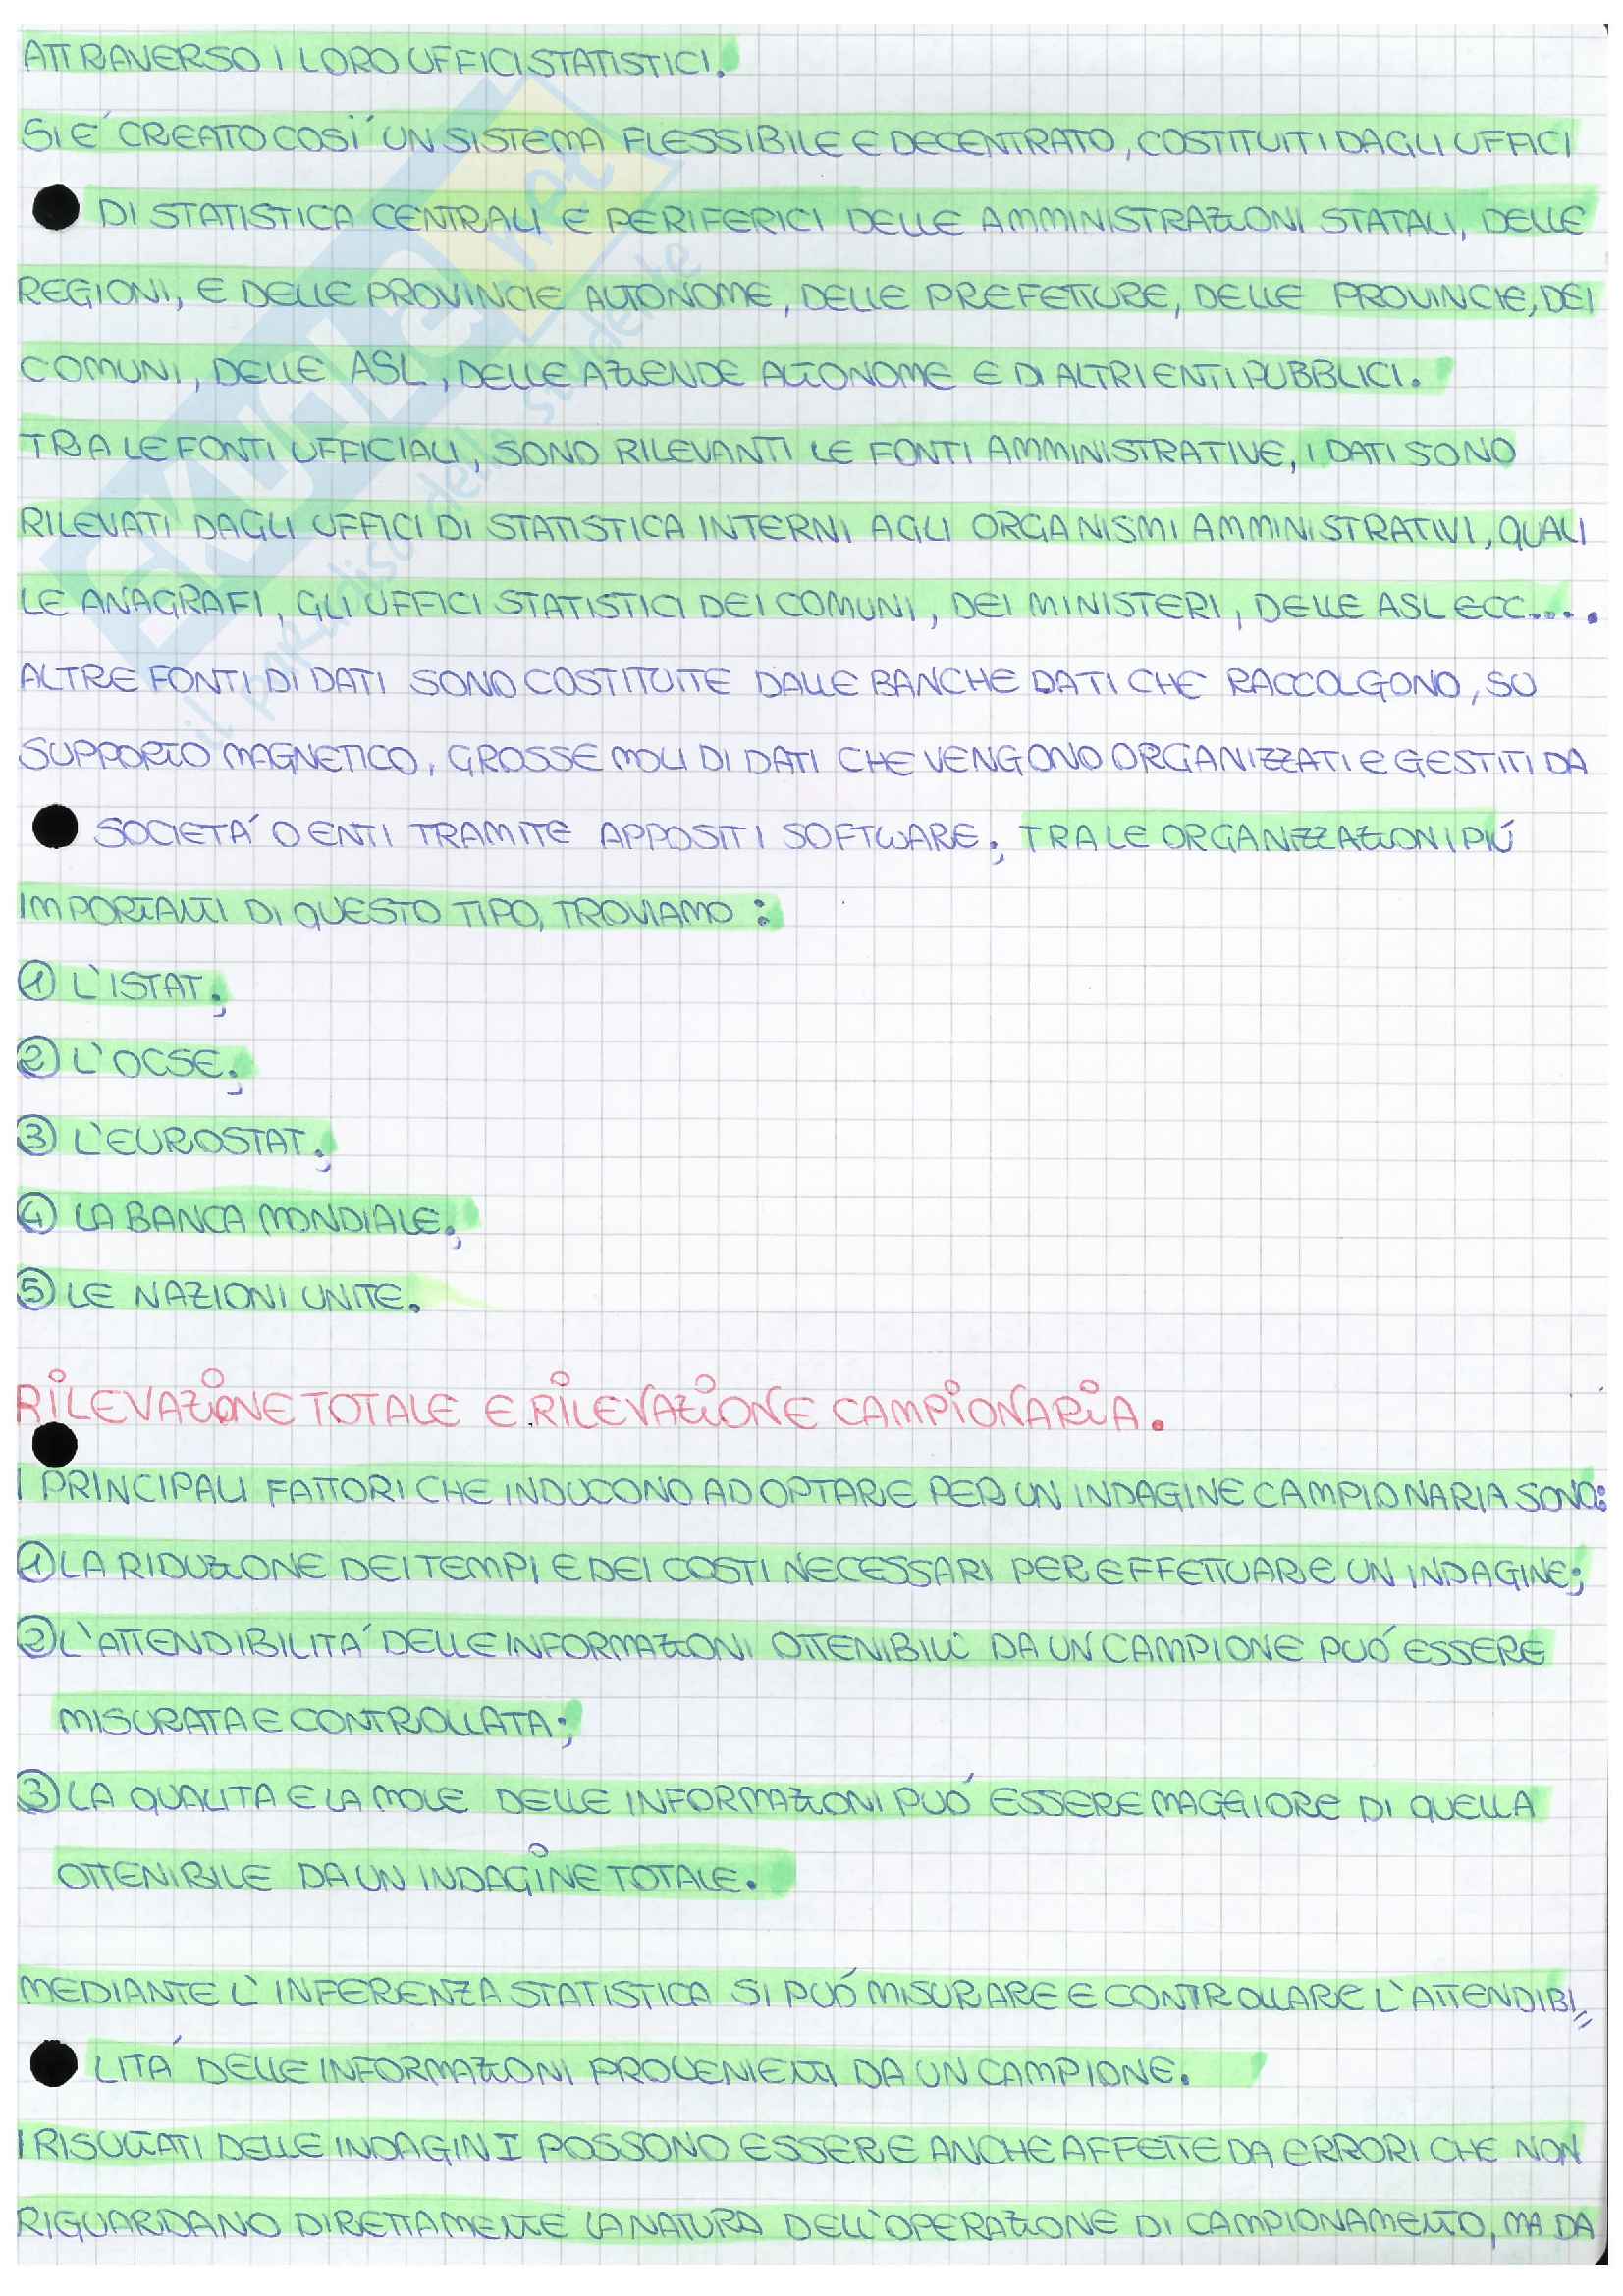 ATTRAVERSO I LORO UFFICI STATISTICI.
SI E' CREATO COSI' UN SISTEMA FLESSIBILE E DECENTRATO, COSTITUITI DAGLI UFFICI
DI STATISTICA CENTRALI E PERIFERICI DELLE AMMINISTRAZIONI STATALI, DELLE
REGIONI, E DELLE PROVINCIE AUTONOME, DELLE PREFETTURE, DELLE PROVINCIE, DEI
COMUNI, DELLE ASL, DELLE AZIENDE AUTONOME E DI ALTRI ENTI PUBBLICI.
TRA LE FONTI UFFICIALI, SONO RILEVANTI LE FONTI AMMINISTRATIVE, I DATI SONO
RILEVATI DAGLI UFFICI DI STATISTICA INTERNI AGLI ORGANISMI AMMINISTRATIVI, QUALI
LE ANAGRAFI, GLI UFFICI STATISTICI DEI COMUNI, DEI MINISTERI, DELLE ASL ECC....
ALTRE FONTI DI DATI SONO COSTITUITE DALLE BANCHE DATI CHE RACCOLGONO, SU
SUPPORTO MAGNETICO, GROSSE MOLI DI DATI CHE VENGONO ORGANIZZATI E GESTITI DA
SOCIETA' O ENTI TRAMITE APPOSITI SOFTWARE; TRA LE ORGANIZZAZIONI PIÚ
IMPORTANTI DI QUESTO TIPO, TROVIAMO:
① L'ISTAT;
② L'OCSE;
③ L'EUROSTAT;
④ LA BANCA MONDIALE;
⑤ LE NAZIONI UNITE.
RILEVAZIONE TOTALE E RILEVAZIONE CAMPIONARIA.
I PRINCIPALI FATTORI CHE INDUCONO AD OPTARE PER UN INDAGINE CAMPIONARIA SONO:
① LA RIDUZIONE DEI TEMPI E DEI COSTI NECESSARI PER EFFETTUARE UN INDAGINE;
② L'ATTENDIBILITA' DELLE INFORMAZIONI OTTENIBILI DA UN CAMPIONE PUÓ ESSERE
MISURATA E CONTROLLATA;
③ LA QUALITA E LA MOLE DELLE INFORMAZIONI PUÓ ESSERE MAGGIORE DI QUELLA
OTTENIBILE DA UN INDAGINE TOTALE.
MEDIANTE L'INFERENZA STATISTICA SI PUÓ MISURARE E CONTROLLARE L'ATTENDIBI=
LITÁ DELLE INFORMAZIONI PROVENIENTI DA UN CAMPIONE.
I RISULTATI DELLE INDAGINI POSSONO ESSERE ANCHE AFFETTE DA ERRORI CHE NON
RIGUARDANO DIRETTAMENTE LA NATURA DELL'OPERAZIONE DI CAMPIONAMENTO, MA DA
SKUOLA.net
il paradiso dello studente